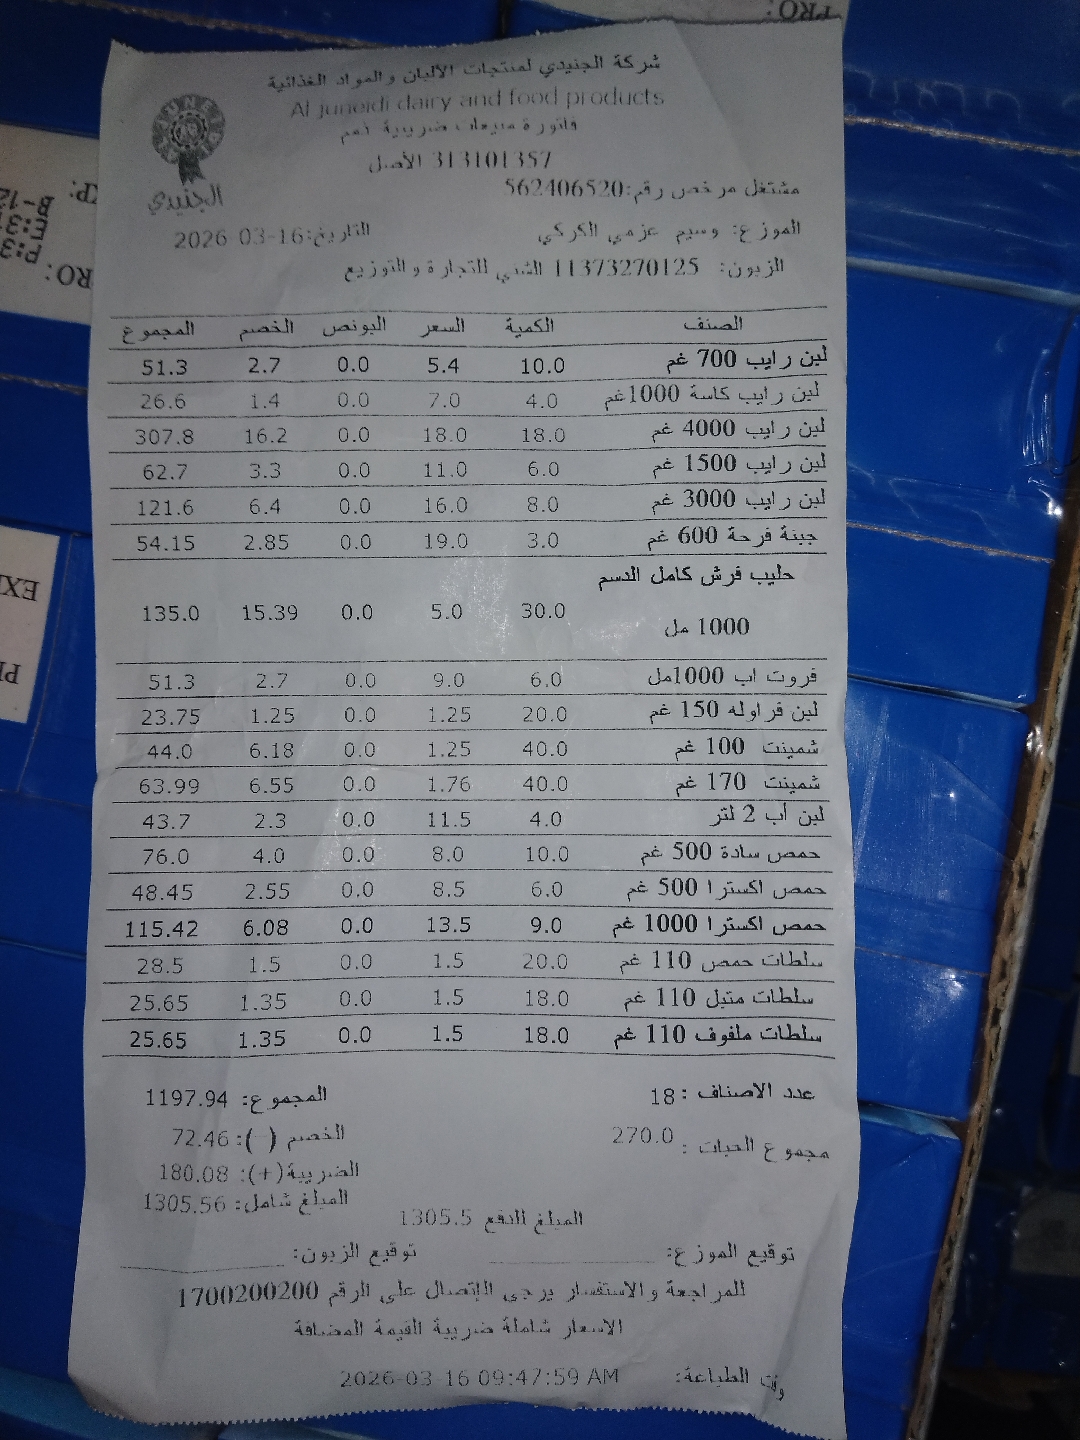 PRO:
شركة الجنيدي لمنتجات الألبان والمواد الغذائية
Al juneidi dairy and food products
فاتورة مبيعات ضريبية ذمم
313101357 الأصل
الجنيدي
مشتغل مرخص رقم:562406520
الموزع: وسيم عزمي الكركي التاريخ:16-03-2026
الزبون: 11373270125 الشني للتجارة والتوزيع
الصنف الكمية السعر البونص الخصم المجموع
لبن رايب 700 غم 10.0 5.4 0.0 2.7 51.3
لبن رايب كاسة 1000غم 4.0 7.0 0.0 1.4 26.6
لبن رايب 4000 غم 18.0 18.0 0.0 16.2 307.8
لبن رايب 1500 غم 6.0 11.0 0.0 3.3 62.7
لبن رايب 3000 غم 8.0 16.0 0.0 6.4 121.6
جبنة فرحة 600 غم 3.0 19.0 0.0 2.85 54.15
حليب فرش كامل الدسم
1000 مل 30.0 5.0 0.0 15.39 135.0
فروت اب 1000مل 6.0 9.0 0.0 2.7 51.3
لبن فراوله 150 غم 20.0 1.25 0.0 1.25 23.75
شمينت 100 غم 40.0 1.25 0.0 6.18 44.0
شمينت 170 غم 40.0 1.76 0.0 6.55 63.99
لبن اب 2 لتر 4.0 11.5 0.0 2.3 43.7
حمص سادة 500 غم 10.0 8.0 0.0 4.0 76.0
حمص اكسترا 500 غم 6.0 8.5 0.0 2.55 48.45
حمص اكسترا 1000 غم 9.0 13.5 0.0 6.08 115.42
سلطات حمص 110 غم 20.0 1.5 0.0 1.5 28.5
سلطات متبل 110 غم 18.0 1.5 0.0 1.35 25.65
سلطات ملفوف 110 غم 18.0 1.5 0.0 1.35 25.65
عدد الاصناف : 18 المجموع: 1197.94
مجموع الحبات : 270.0 الخصم (-): 72.46
الضريبة(+): 180.08
المبلغ شامل: 1305.56
المبلغ للدفع 1305.5
توقيع الموزع: توقيع الزبون:
للمراجعة والاستفسار يرجى الإتصال على الرقم 1700200200
الاسعار شاملة ضريبة القيمة المضافة
وقت الطباعة: 2026-03-16 09:47:59 AM